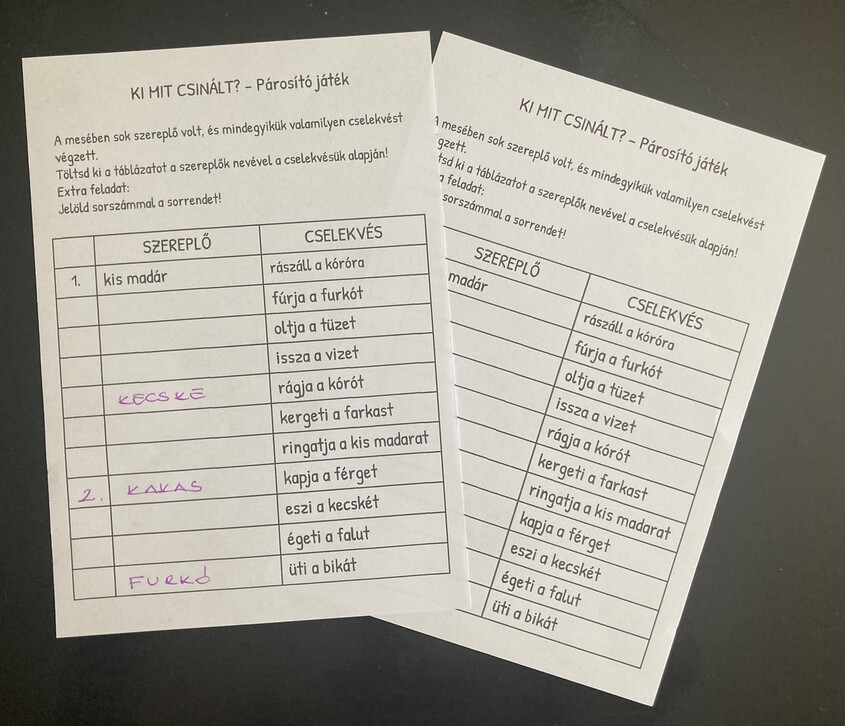 KI MIT CSINÁLT? – Párosító játék
A mesében sok szereplő volt, és mindegyikük valamilyen cselekvést
végzett.
Töltsd ki a táblázatot a szereplők nevével a cselekvésük alapján!
Extra feladat:
Jelöld sorszámmal a sorrendet!
SZEREPLŐ CSELEKVÉS
1. kis madár rászáll a kóróra
fúrja a furkót
oltja a tüzet
issza a vizet
KECSKE rágja a kórót
kergeti a farkast
ringatja a kis madarat
2. KAKAS kapja a férget
eszi a kecskét
égeti a falut
FURKÓ üti a bikát
KI MIT CSINÁLT? – Párosító játék
mesében sok szereplő volt, és mindegyikük valamilyen cselekvést
gzett.
tsd ki a táblázatot a szereplők nevével a cselekvésük alapján!
a feladat:
sorszámmal a sorrendet!
SZEREPLŐ CSELEKVÉS
madár rászáll a kóróra
fúrja a furkót
oltja a tüzet
issza a vizet
rágja a kórót
kergeti a farkast
ringatja a kis madarat
kapja a férget
eszi a kecskét
égeti a falut
üti a bikát